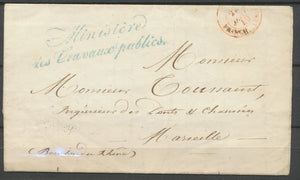 Ministère
des Travaux publics.
Monsieur
Monsieur Toussaint,
Ingénieur des Ponts & Chaussées
Marseille
(Bouches du Rhône)